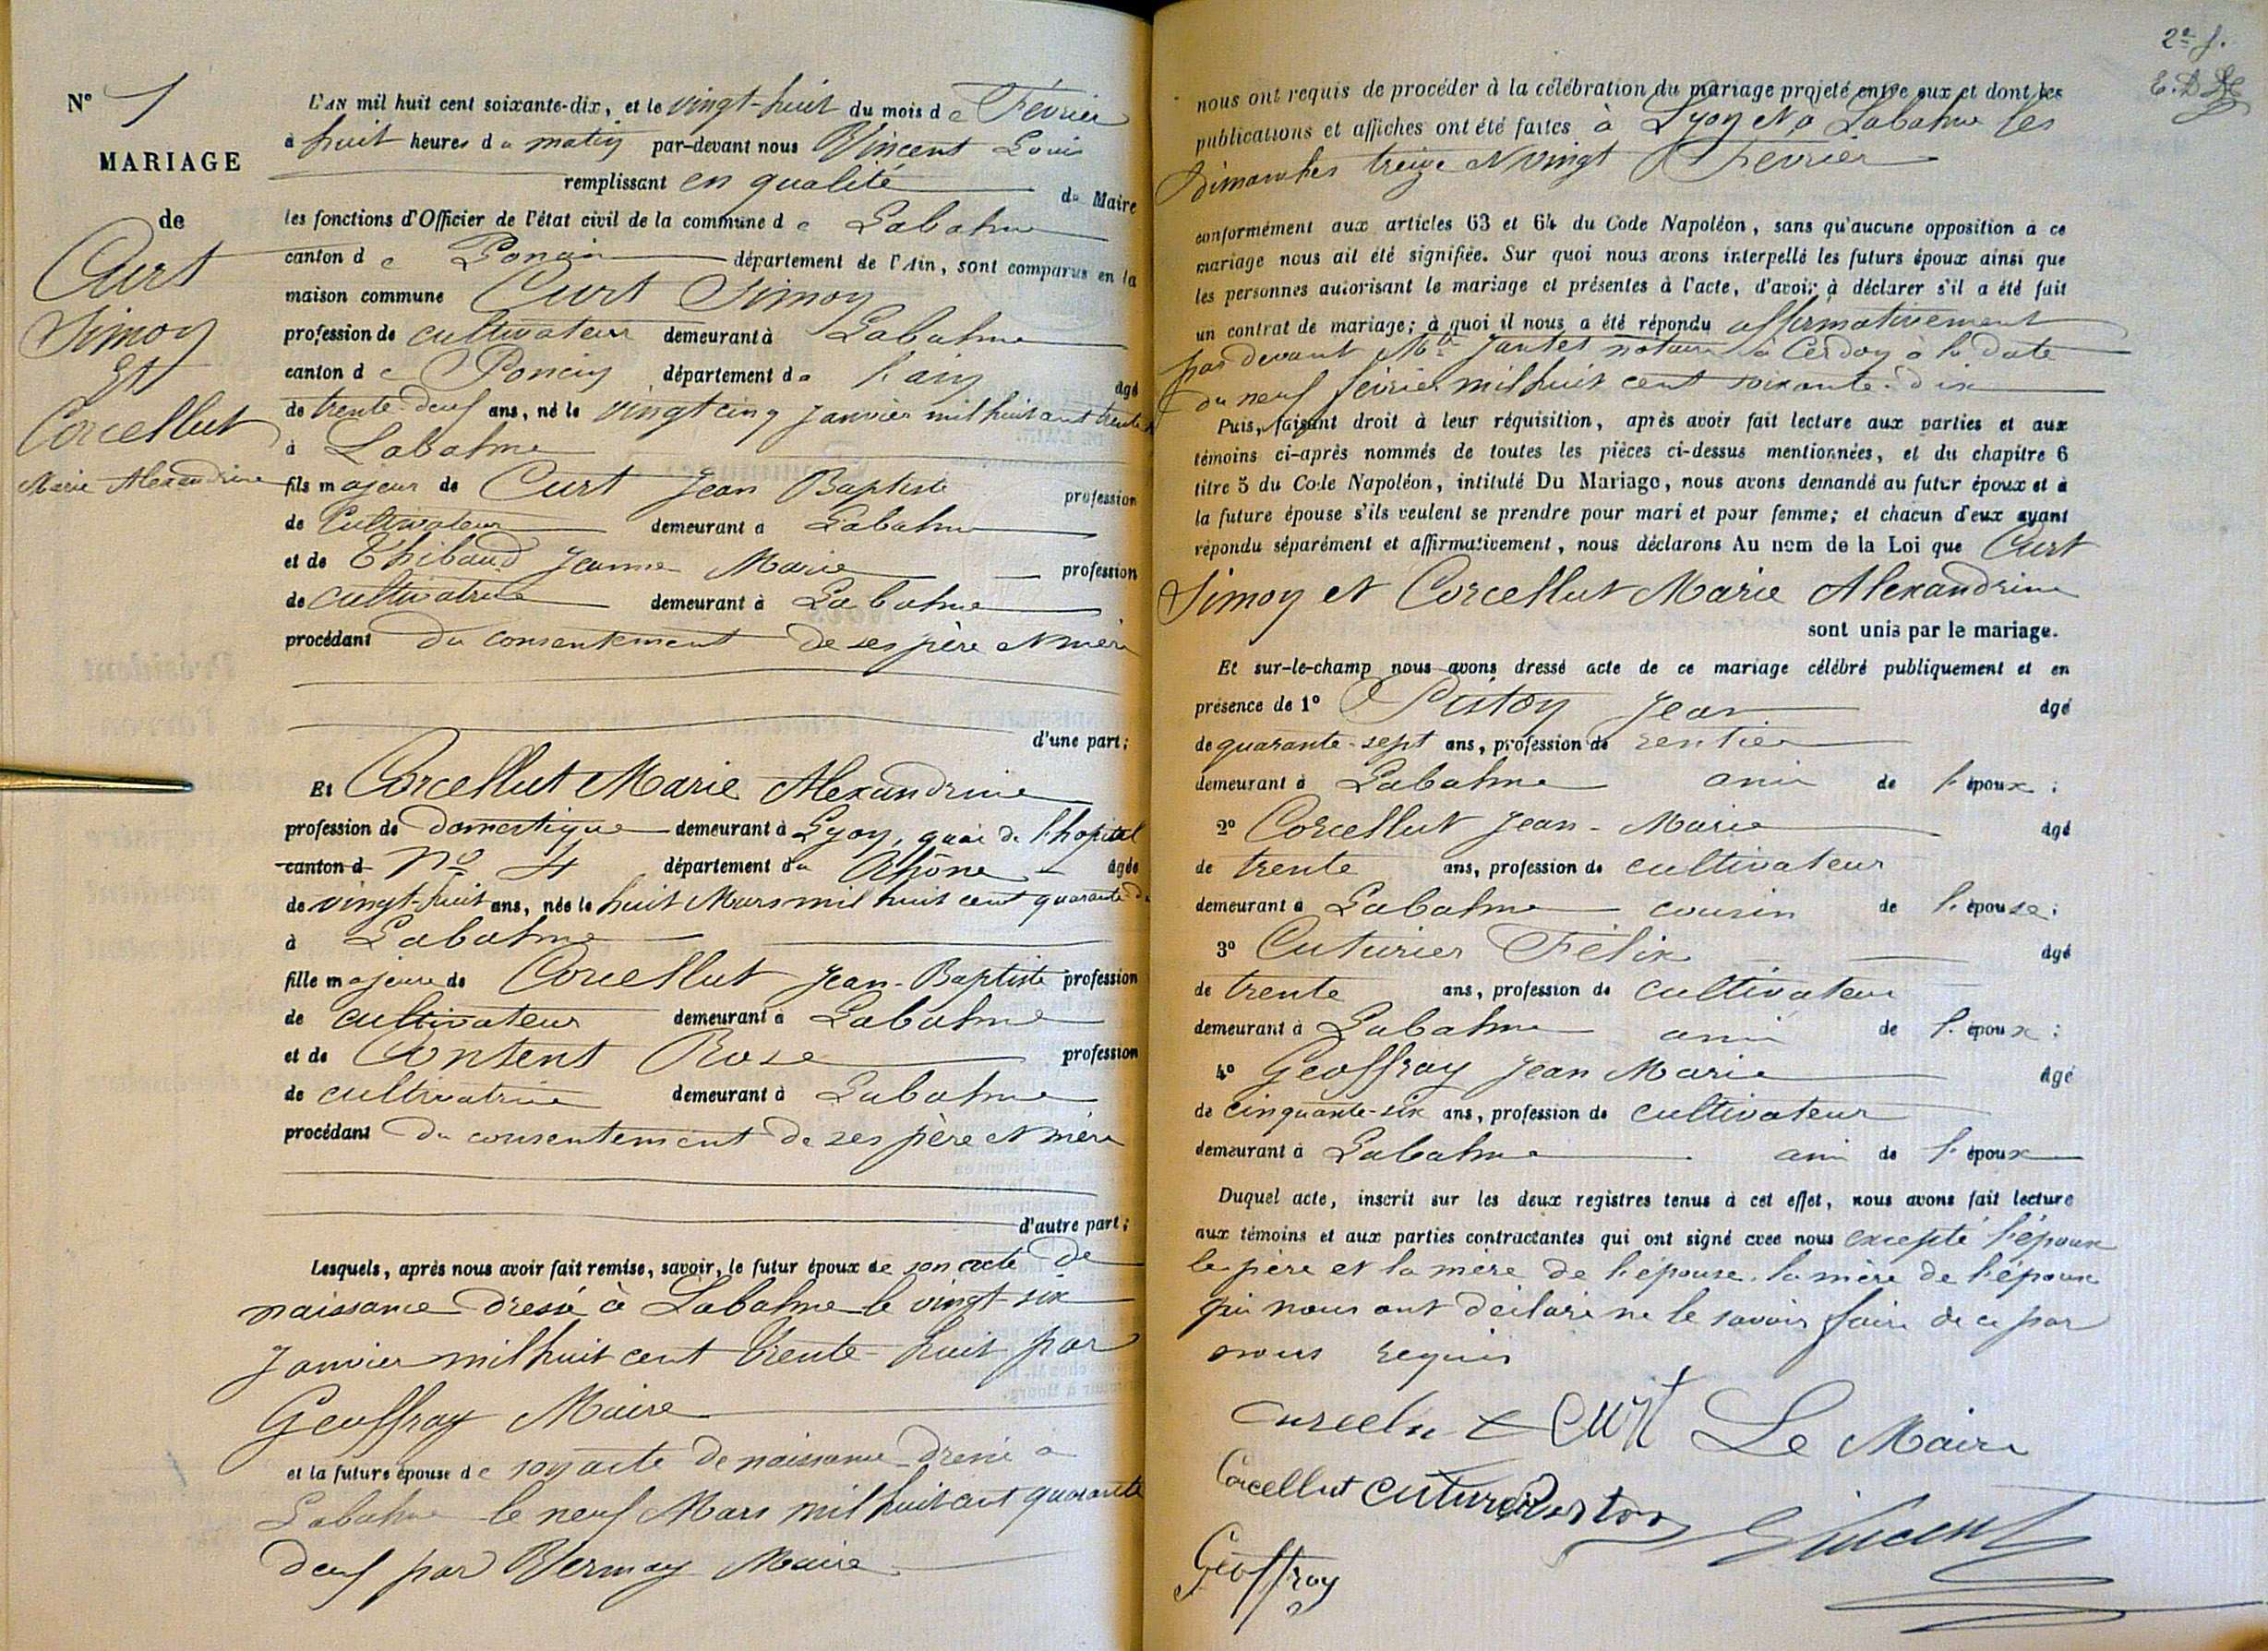 N° 1
MARIAGE
de
Curt
Simon
Et
Corcellut
Marie Alexandrine
L'AN mil huit cent soixante-dix, et le vingt-huit du mois de Février
à huit heures du matin par-devant nous Vincent Louis
remplissant en qualité de Maire
les fonctions d'Officier de l'état civil de la commune de Labalme
canton de Poncin département de l'Ain, sont comparus en la
maison commune Curt Simon
profession de cultivateur demeurant à Labalme
canton de Poncin département de l'ain âgé
de trente-deux ans, né le vingt cinq Janvier mil huit cent trente
à Labalme
fils majeur de Curt Jean Baptiste profession
de Cultivateur demeurant à Labalme
et de Thibaud Jeanne Marie profession
de cultivatrice demeurant à Labalme
procédant du consentement de ses père et mère
d'une part;
Et Corcellut Marie Alexandrine
profession de domestique demeurant à Lyon, quai de l'hopital
canton d N° 4 département du Rhône âgée
de vingt-huit ans, née le huit Mars mil huit cent quarante
à Labalme
fille majeure de Corcellut Jean-Baptiste profession
de cultivateur demeurant à Labalme
et de Content Rose profession
de cultivatrice demeurant à Labalme
procédant du consentement de ses père et mère
d'autre part;
Lesquels, après nous avoir fait remise, savoir, le futur époux de son acte de
naissance dressé à Labalme le vingt-six
Janvier mil huit cent trente-huit par
Geoffray Maire
et la future épouse de son acte de naissance dressé à
Labalme le neuf Mars mil huit cent quarante
deux par Vermay Maire
2e f.
nous ont requis de procéder à la célébration du mariage projeté entre eux et dont les
publications et affiches ont été faites à Lyon et à Labalme les
dimanches treize et vingt Février
conformément aux articles 63 et 64 du Code Napoléon, sans qu'aucune opposition à ce
mariage nous ait été signifiée. Sur quoi nous avons interpellé les futurs époux ainsi que
les personnes autorisant le mariage et présentes à l'acte, d'avoir à déclarer s'il a été fait
un contrat de mariage; à quoi il nous a été répondu affirmativement
par devant Me Jantet notaire à Cerdon à la date
du neuf février mil huit cent soixante-dix
Puis, faisant droit à leur réquisition, après avoir fait lecture aux parties et aux
témoins ci-après nommés de toutes les pièces ci-dessus mentionnées, et du chapitre 6
titre 5 du Code Napoléon, intitulé Du Mariage, nous avons demandé au futur époux et à
la future épouse s'ils veulent se prendre pour mari et pour femme; et chacun d'eux ayant
répondu séparément et affirmativement, nous déclarons Au nom de la Loi que Curt
Simon et Corcellut Marie Alexandrine
sont unis par le mariage.
Et sur-le-champ nous avons dressé acte de ce mariage célébré publiquement et en
présence de 1° Piston Jean âgé
de quarante-sept ans, profession de rentier
demeurant à Labalme ami de l'époux;
2° Corcellut Jean-Marie âgé
de trente ans, profession de cultivateur
demeurant à Labalme cousin de l'épouse;
3° Cuturier Félix âgé
de trente ans, profession de cultivateur
demeurant à Labalme ami de l'époux;
4° Geoffray Jean Marie âgé
de cinquante-six ans, profession de cultivateur
demeurant à Labalme ami de l'époux
Duquel acte, inscrit sur les deux registres tenus à cet effet, nous avons fait lecture
aux témoins et aux parties contractantes qui ont signé avec nous excepté l'époux
le père et la mère de l'épouse, la mère de l'époux
qui nous ont déclaré ne le savoir faire de ce par
nous requis
Curt Le Maire
Corcellut Cuturier Piston Vincent
Geoffroy